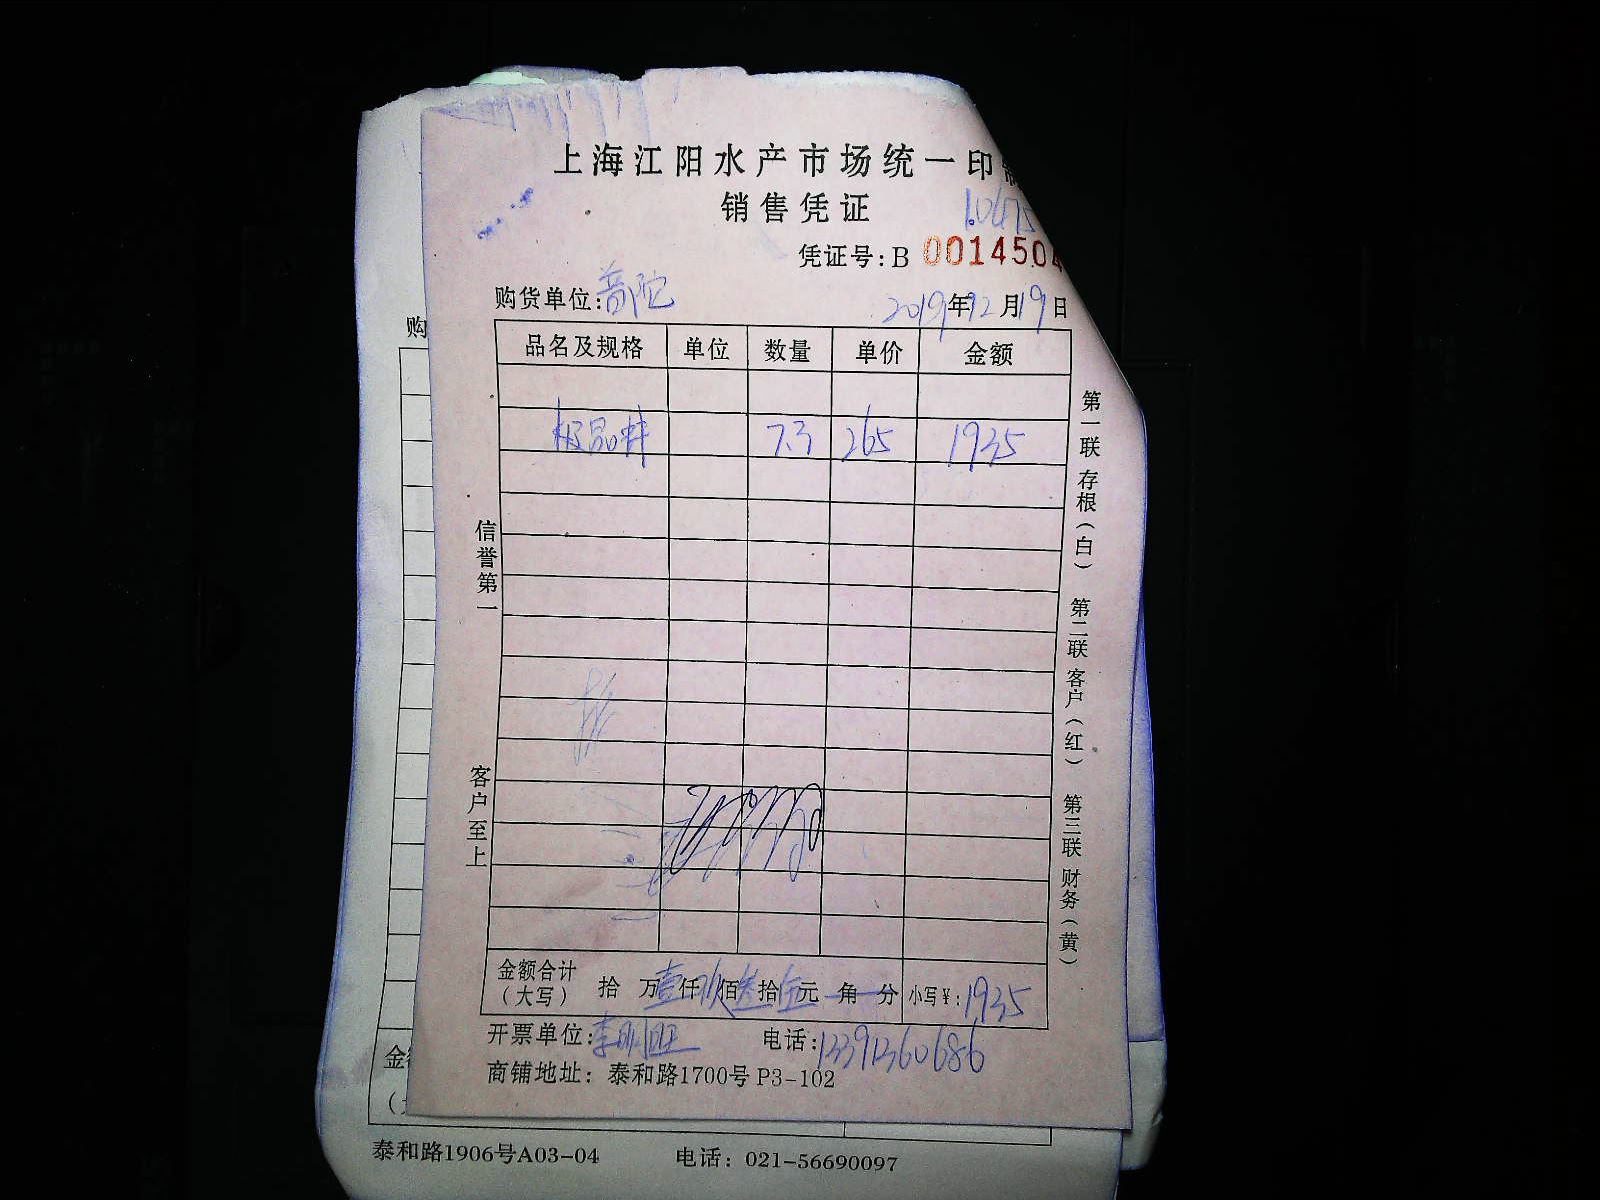 上海江阳水产市场统一印
销售凭证
凭证号：B 0014504
购货单位：普陀 2019年12月19日
品名及规格 单位 数量 单价 金额
极品虾 7.3 265 1935
信誉第一
客户至上
第一联 存根（白） 第二联 客户（红） 第三联 财务（黄）
金额合计（大写） 拾 万壹仟玖佰叁拾伍元 角 分 小写￥：1935
开票单位： 电话：13391360686
商铺地址：泰和路1700号 P3-102
购
金
泰和路1906号A03-04 电话：021-56690097